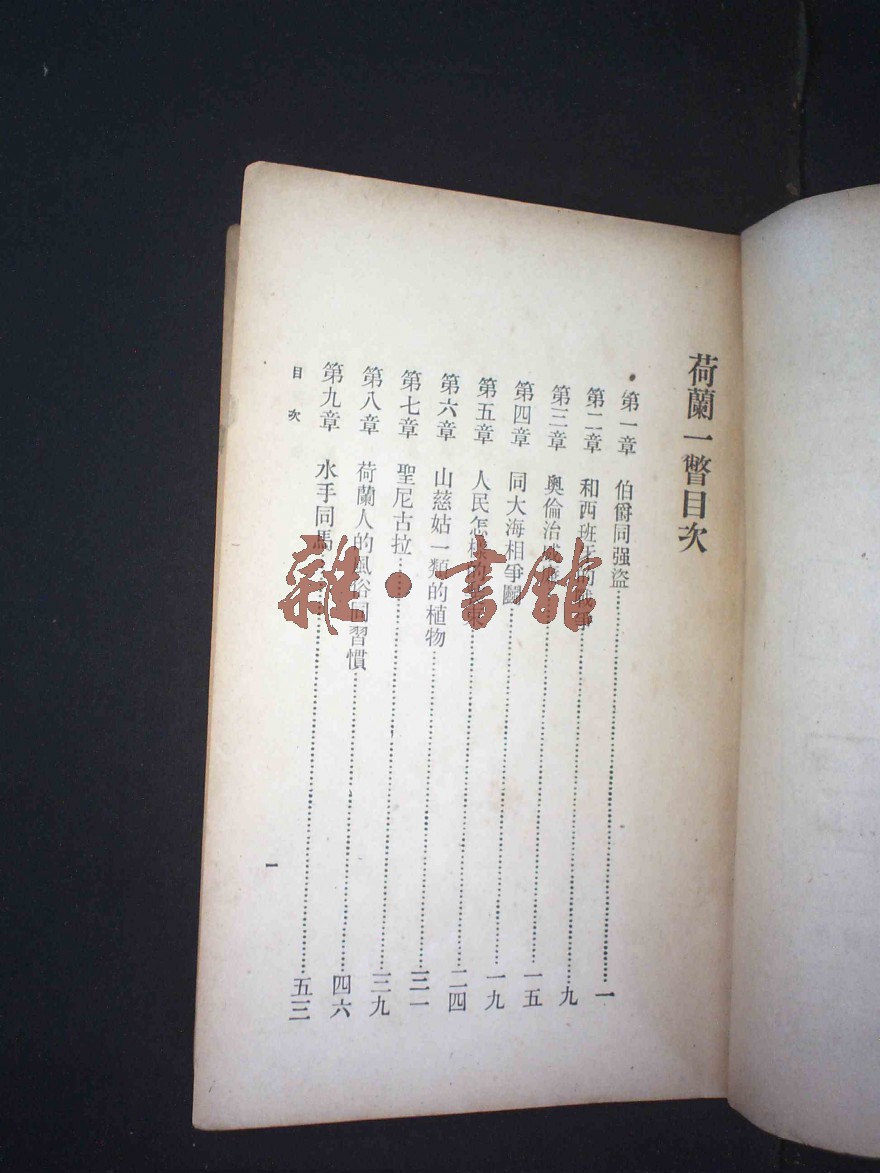 荷蘭一瞥目次
第一章 伯爵同强盜 一
第二章 和西班牙的戰爭 九
第三章 奧倫治威廉 一五
第四章 同大海相爭鬭 一九
第五章 人民怎樣的 二四
第六章 山慈姑一類的植物 三一
第七章 聖尼古拉 三九
第八章 荷蘭人的風俗同習慣 四六
第九章 水手同馬 五三
目次
一
雜·書館